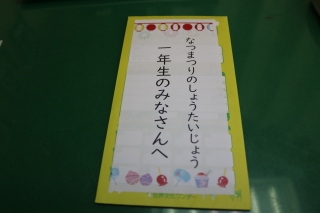 なつまつりのしょうたいじょう
一年生のみなさんへ